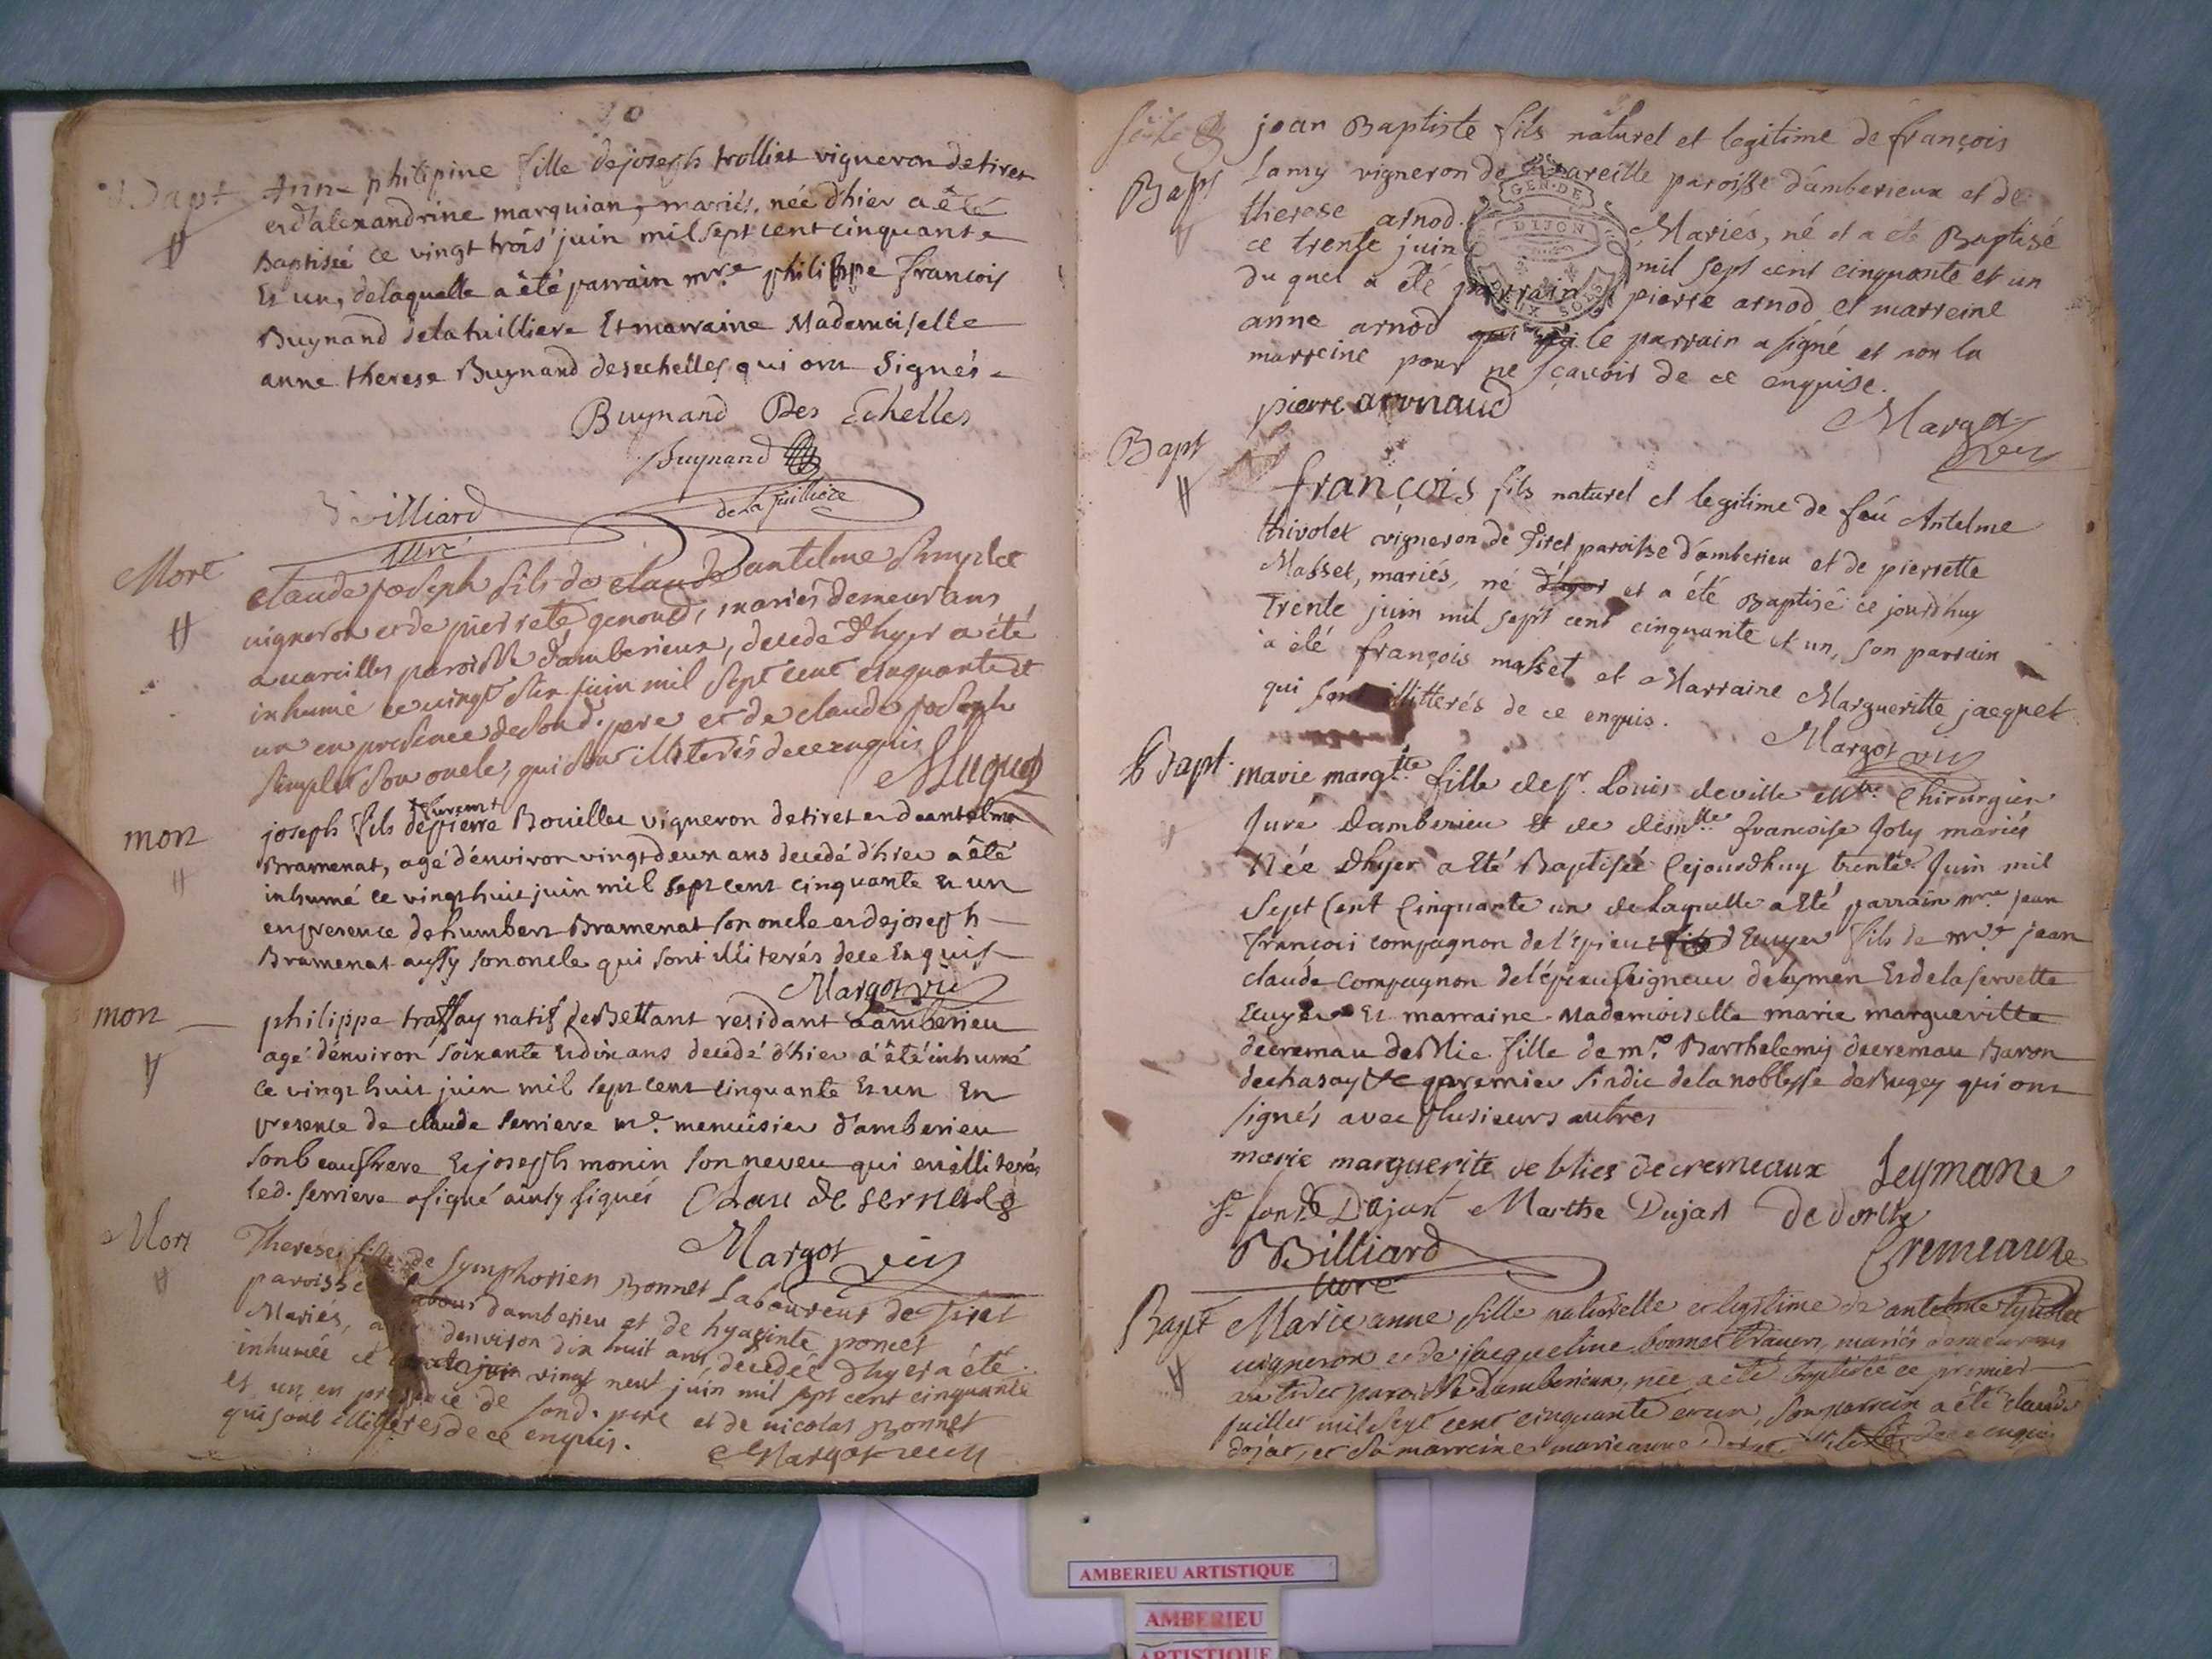 Bapt
Anne philipine fille de joseph trolliet vigneron de tiret
et d'alexandrine marquian, mariés, née d'hier a été
Baptisée ce vingt trois juin mil sept cent cinquante
Et un, de laquelle a été parrain mre philippe francois
Buynand de la tuilliere Et marraine Mademoiselle
anne therese Buynand desechelles qui ont signés
Buynand Des Echelles
Buynand
de la Tuilliere
Billiard
curé
Mort
claude joseph fils de claude antelme simplet
vigneron et de pierrete genoud, mariés demeurans
a vareilles paroisse d'amberieux, decedé d'hyer a été
inhumé ce vingt six juin mil sept cent cinquante et
un en presence de sond. pere et de claude joseph
simplet son oncle, qui sont illiterés de ce enquis
mort
joseph fils de pierre Bouillet vigneron de tiret et d'antelma
Bramenat, agé d'environ vingt deux ans decedé d'hier a été
inhumé ce vingt huit juin mil sept cent cinquante Et un
en presence de humbert Bramenat son oncle et de joseph
Bramenat aussy son oncle qui sont illiterés de ce Enquis
Margot vic
mort
philippe traffay natif de Bettant residant a amberieu
agé d'environ soixante Et dix ans decedé d'hier a été inhumé
ce vingt huit juin mil sept cent cinquante Et un En
presence de claude serriere me. menuisier d'amberieu
son beaufrere Et joseph monin son neveu qui est illiteré,
led. serriere a signé
Margot vic
Mort
Therese fille de symphorien Bonnet Laboureur de tiret
paroisse d'amberieu et de hyacinte poncet
Mariés, agée d'environ dix huit ans, decedée d'hyer a été
inhumée ce vingt neuf juin mil sept cent cinquante
et un en presence de sond. pere et de nicolas Bonnet
qui sont illitterés de ce enquis.
Margot vic
Bapt
jean Baptiste fils naturel et legitime de françois
Lamy vigneron de Vareille paroisse d'amberieux et de
therese arnod. Mariés, né et a été Baptisé
ce trente juin mil sept cent cinquante et un
du quel a été parrain pierre arnod et marreine
anne arnod le parrain a signé et non la
marreine pour ne sçavoir de ce enquise.
GEN. DE
DIJON
DEUX SOLS
pierre arnnaud
Margot
vic
Bapt
françois fils naturel et legitime de feu Antelme
trivolet vigneron de Tiret paroisse d'amberieu et de pierrette
Masset, mariés, né et a été Baptisé ce jourdhuy
trente juin mil sept cent cinquante et un, son parrain
a été françois masset et Marraine Margueritte jacquet
qui sont illitterés de ce enquis.
Margot vic
Bapt.
marie margtte. fille de sr. Louis deville Mtre. Chirurgien
Juré d'amberieu Et de demlle francoise Joly mariés
Née d'hyer a Eté Baptisée Cejourdhuy trente Juin mil
Sept Cent Cinquante un de Laquelle a Eté parrain mre jean
francois compagnon de l'epieu Ecuyer fils de mre jean
claude Compagnon de l'épieu seigneur de leymen Et de la servette
Ecuyer Et marraine Mademoiselle marie margueritte
decremau de Blie fille de mre Barthelemy decremau Baron
de chasay &c premier sindic de la noblesse de Bugey qui ont
signés avec plusieurs autres
marie marguerite de blies decremeaux Leymane
Dujast Marthe Dujast
Billiard
Cremeaux
curé
Bapt
Marie anne fille naturelle et legitime de antelme
vigneron et de jacqueline bonnet mariés demeurans
paroisse d'amberieux, née a été baptisée ce premier
juillet mil sept cent cinquante et un, son parrain a été claude
dojat, et sa marreine marieanne
AMBERIEU ARTISTIQUE
AMBERIEU
ARTISTIQUE